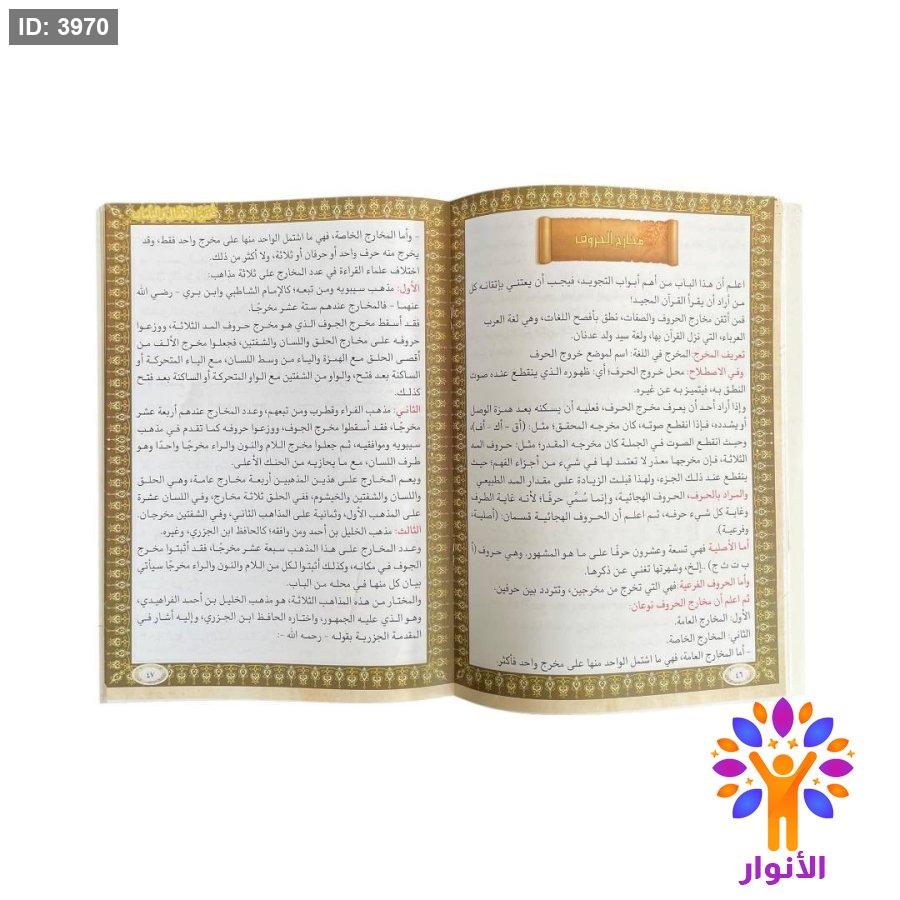 ID: 3970
مخارج الحروف
اعلم أن هذا الباب من أهم أبواب التجويد، فيجب أن يعتني بإتقانه كل
من أراد أن يقرأ القرآن المجيد!
فمن أتقن مخارج الحروف والصفات، نطق بأفصح اللغات، وهي لغة العرب
العرباء، التي نزل القرآن بها، ولغة سيد ولد عدنان.
تعريف المخرج: المخرج في اللغة: اسم لموضع خروج الحرف
وفي الاصطلاح: محل خروج الحرف؛ أي: ظهوره الذي ينقطع عنده صوت
النطق به، فيتميز به عن غيره.
وإذا أراد أحد أن يعرف مخرج الحرف، فعليه أن يسكنه بعد همزة الوصل
أو يشدده، فإذا انقطع صوته، كان مخرجه المحقق؛ مثل: (أق - أك - أف)،
وحيث انقطع الصوت في الجملة كان مخرجه المقدر؛ مثل: حروف المد
الثلاثة، فإن مخرجها مقدر لا تعتمد لها في شيء من أجزاء الفم؛ حيث
ينقطع عند ذلك الجزء، ولهذا قبلت الزيادة على مقدار المد الطبيعي
والمراد بالحرف: الحروف الهجائية، وإنما سُمِّي حرفًا؛ لأنه غاية الطرف
وغاية كل شيء حرفه، ثم اعلم أن الحروف الهجائية قسمان: (أصلية،
وفرعية).
أما الأصلية فهي تسعة وعشرون حرفًا على ما هو المشهور. وهي حروف (أ
ب ت ث ج) ..إلخ، وشهرتها تغني عن ذكرها.
وأما الحروف الفرعية: فهي التي تخرج من مخرجين، وتتردد بين حرفين.
ثم اعلم أن مخارج الحروف نوعان:
الأول: المخارج العامة.
الثاني: المخارج الخاصة.
- أما المخارج العامة، فهي ما اشتمل الواحد منها على مخرج واحد فأكثر.
٤٦
- وأما المخارج الخاصة، فهي ما اشتمل الواحد منها على مخرج واحد فقط، وقد
يخرج منه حرف واحد أو حرفان أو ثلاثة، ولا أكثر من ذلك.
اختلاف علماء القراءة في عدد المخارج على ثلاثة مذاهب:
الأول: مذهب سيبويه ومن تبعه؛ كالإمام الشاطبي وابن بري - رضي الله
عنهما - فالمخارج عندهم ستة عشر مخرجًا.
فقد أسقط مخرج الجوف الذي هو مخرج حروف المد الثلاثة، ووزعوا
حروفه على مخارج الحلق واللسان والشفتين، فجعلوا مخرج الألف من
أقصى الحلق مع الهمزة والياء من وسط اللسان، مع الياء المتحركة أو
الساكنة بعد فتح، والواو من الشفتين مع الواو المتحركة أو الساكنة بعد فتح
كذلك.
الثاني: مذهب الفراء وقطرب ومن تبعهم، وعدد المخارج عندهم أربعة عشر
مخرجًا، فقد أسقطوا مخرج الجوف، ووزعوا حروفه كما تقدم في مذهب
سيبويه وموافقيه، ثم جعلوا مخرج اللام والنون والراء مخرجًا واحدًا وهو
طرف اللسان، مع ما يحازيه من الحنك الأعلى.
ويعم المخارج على هذين المذهبين أربعة مخارج عامة، وهي الحلق
واللسان والشفتين والخيشوم، ففي الحلق ثلاثة مخارج، وفي اللسان عشرة
على المذهب الأول، وثمانية على المذهب الثاني، وفي الشفتين مخرجان.
الثالث: مذهب الخليل بن أحمد ومن وافقه؛ كالحافظ ابن الجزري، وغيره.
وعدد المخارج على هذا المذهب سبعة عشر مخرجًا، فقد أثبتوا مخرج
الجوف في مكانه، وكذلك أثبتوا لكل من اللام والنون والراء مخرجًا سيأتي
بيان كل منها في محله من الباب.
والمختار من هذه المذاهب الثلاثة، هو مذهب الخليل بن أحمد الفراهيدي،
وهو الذي عليه الجمهور، واختاره الحافظ ابن الجزري، وإليه أشار في
المقدمة الجزرية بقوله - رحمه الله -:
٤٧
الأنوار